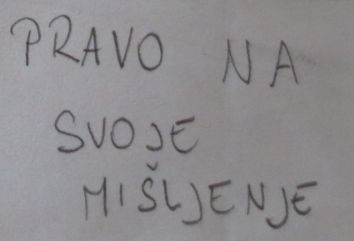 PRAVO NA
SVOJE
MIŠLJENJE